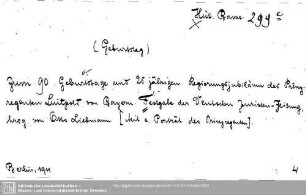 Hist. Bavar. 299c
(Geburtstag)
Zum 90. Geburtstage und 25 jährigen Regierungsjubiläum des Prinz-
regenten Luitpold von Bayern. Festgabe der Deutschen Juristen-Zeitung,
hrsg. von Otto Liebmann. [Mit e. Porträt des Prinzregenten].
Berlin, 1911
4.